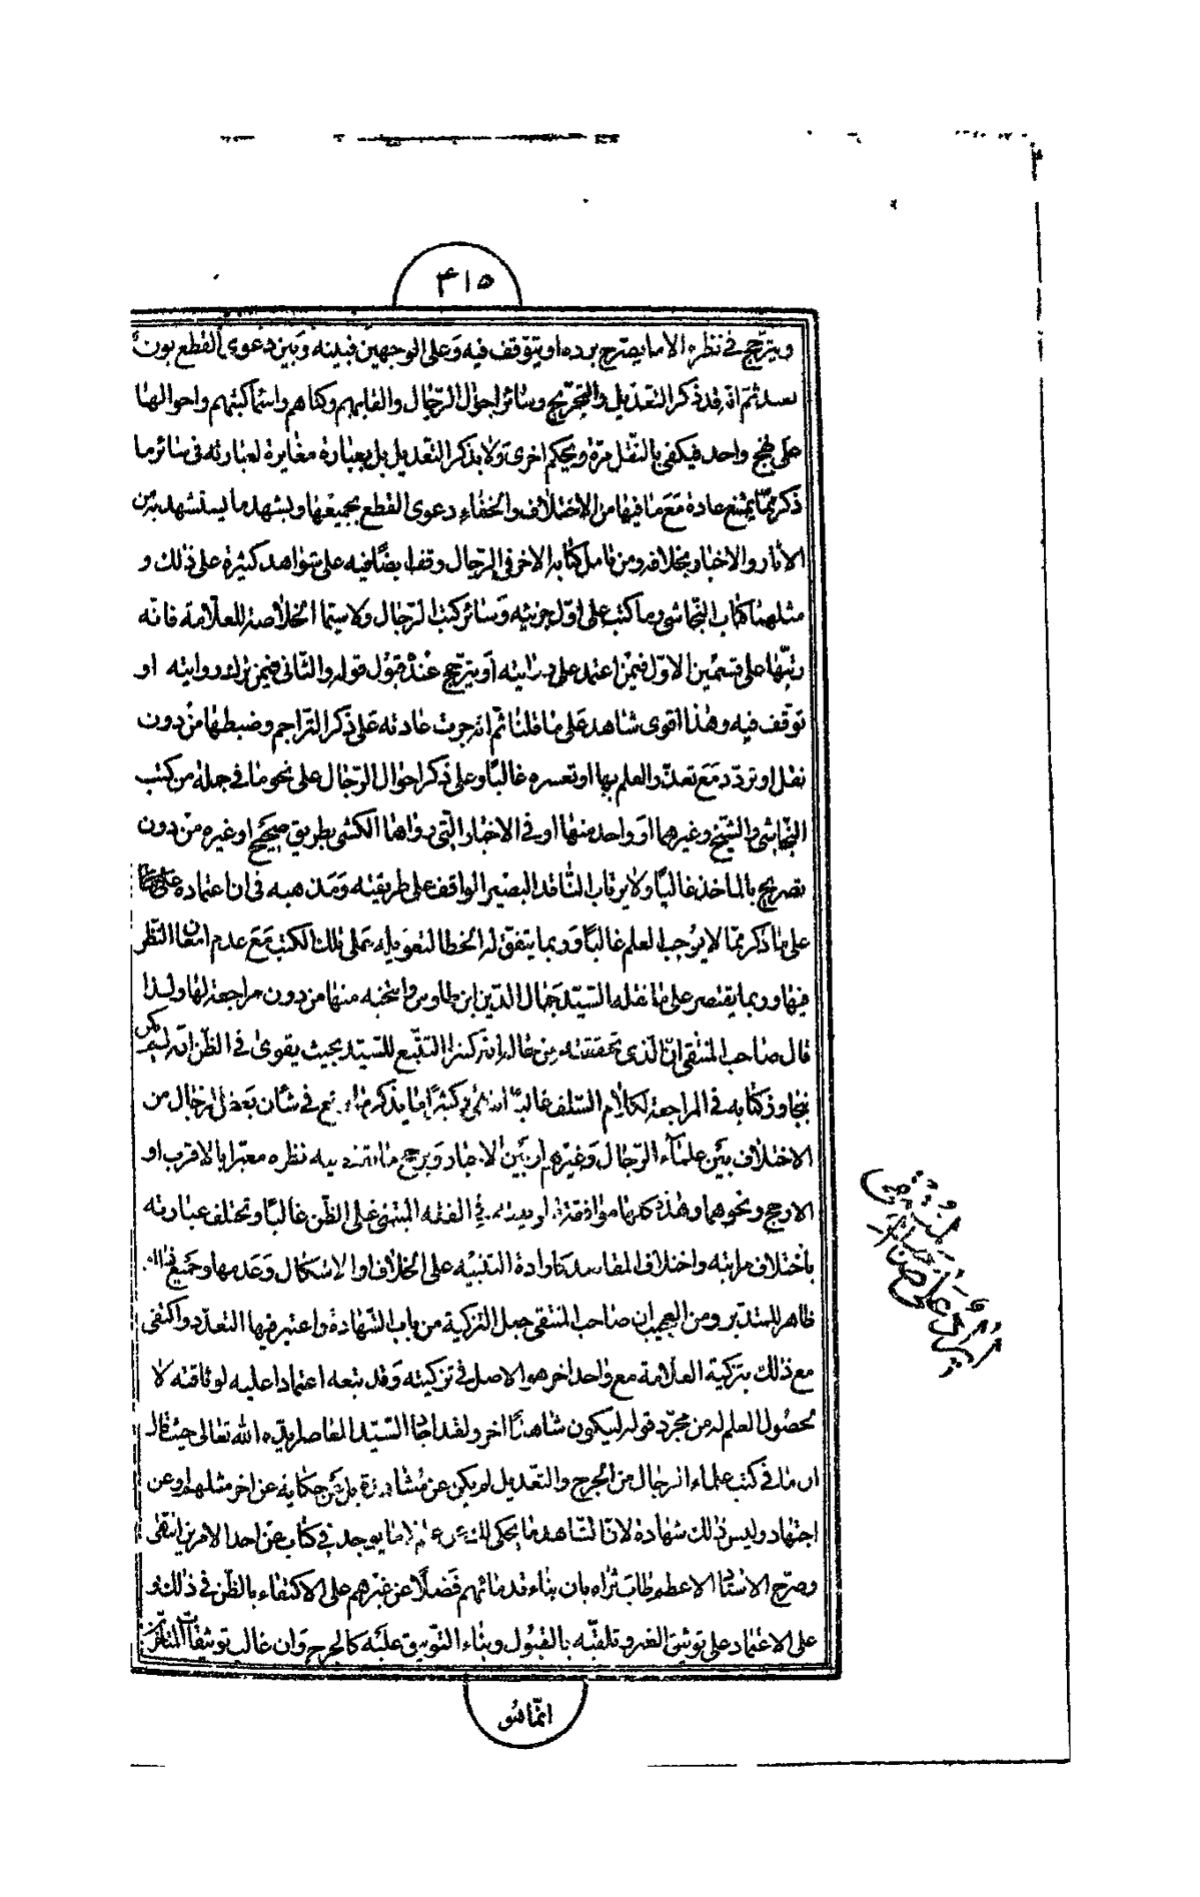 ٤١٥
ويترجح في نظره الا ما يصرح برده او يتوقف فيه وعلى الوجهين فبينه وبين دعوى القطع بون
بعيد ثم انه قد ذكر التعديل والتجريح وسائر احوال الرجال والقابهم وكناهم واسماء كتبهم واحوالها
على نهج واحد فيكفي بالنقل مرة ويحكم اخرى ولا يذكر التعديل بل بعبارة مغايرة لعبارته في سائر ما
ذكر مما يمتنع عادة مع ما فيها من الاختلاف والخفاء دعوى القطع بجميعها ويشهد ما يستشهد به من
الاثار والاخبار بخلافه ومن تامل كتابه الاخر في الرجال وقف ايضا فيه على شواهد كثيرة على ذلك و
مثلهما كتاب النجاشي وما كتب على اول جزئيه وسائر كتب الرجال ولا سيما الخلاصة للعلامة فانه
رتبها على قسمين الاول فيمن اعتمد على روايته او يترجح عنده قبول قوله والثاني فيمن ترك روايته او
توقف فيه وهذا اقوى شاهد على ما قلنا ثم انه جرت عادته على ذكر التراجم وضبطها من دون
نقل او تردد مع تعذر العلم بها او تعسره غالبا وعلى ذكر احوال الرجال على نحو ما في جملة من كتب
النجاشي والشيخ وغيرهما او واحد منها او في الاخبار التي رواها الكشي بطريق صحيح او غيره من دون
تصريح بالماخذ غالبا ولا يرتاب الناقد البصير الواقف على طريقته ومذهبه في ان اعتماده
على ما ذكر مما لا يوجب العلم غالبا وربما يتفق له الخطا لتعويله على تلك الكتب مع عدم امعان النظر
فيها وربما يقتصر على ما نقله السيد جمال الدين ابن طاوس وانتخبه منها من دون مراجعة لها ولذا
قال صاحب المنتقى ان الذي تحققته من حاله انه كثير التتبع للسيد بحيث يقوى في الظن انه لم يكن
يتجاوز كتابه في المراجعة لكلام السلف غالبا انتهى وكثيرا ما يذكر ما وقع في شان بعض الرجال من
الاختلاف بين علماء الرجال وغيرهم او بين الاخبار ويرجح ما انتهى اليه نظره معبرا بالاقرب او
الارجح ونحوهما وهذه كلها موافقة لرويته في الفقه المبتني على الظن غالبا وتختلف عبارته
باختلاف مراتبه واختلاف المقاصد كارادة التنبيه على الخلاف او الاشكال وعدمها وجميع ذلك
ظاهر للمتدبر ومن العجيب ان صاحب المنتقى جعل التزكية من باب الشهادة واعتبر فيها التعدد واكتفى
مع ذلك بتزكية العلامة مع واحد اخر هو الاصل في تزكيته وقد تبعه اعتمادا عليه لوثاقته لا
لحصول العلم له من مجرد قوله ليكون شاهدا اخر ولقد اجاد السيد الفاضل ايده الله تعالى حيث قال
ان ما في كتب علماء الرجال من الجرح والتعديل لم يكن عن مشاهدة بل عن حكاية عن اخر مثلهم او عن
اجتهاد وليس ذلك شهادة لان الشاهد ما يحكي لك عن علم لا ما يوجد في كتاب عن احد الامرين انتهى
وصرح الاستاد الاعظم طاب ثراه بان بناء قدمائهم فضلا عن غيرهم على الاكتفاء بالظن في ذلك و
على الاعتماد على توثيق الغير وتلقيه بالقبول وبناء التوثيق عليه كالجرح وان غالب توثيقات المتاخرين
انما هو